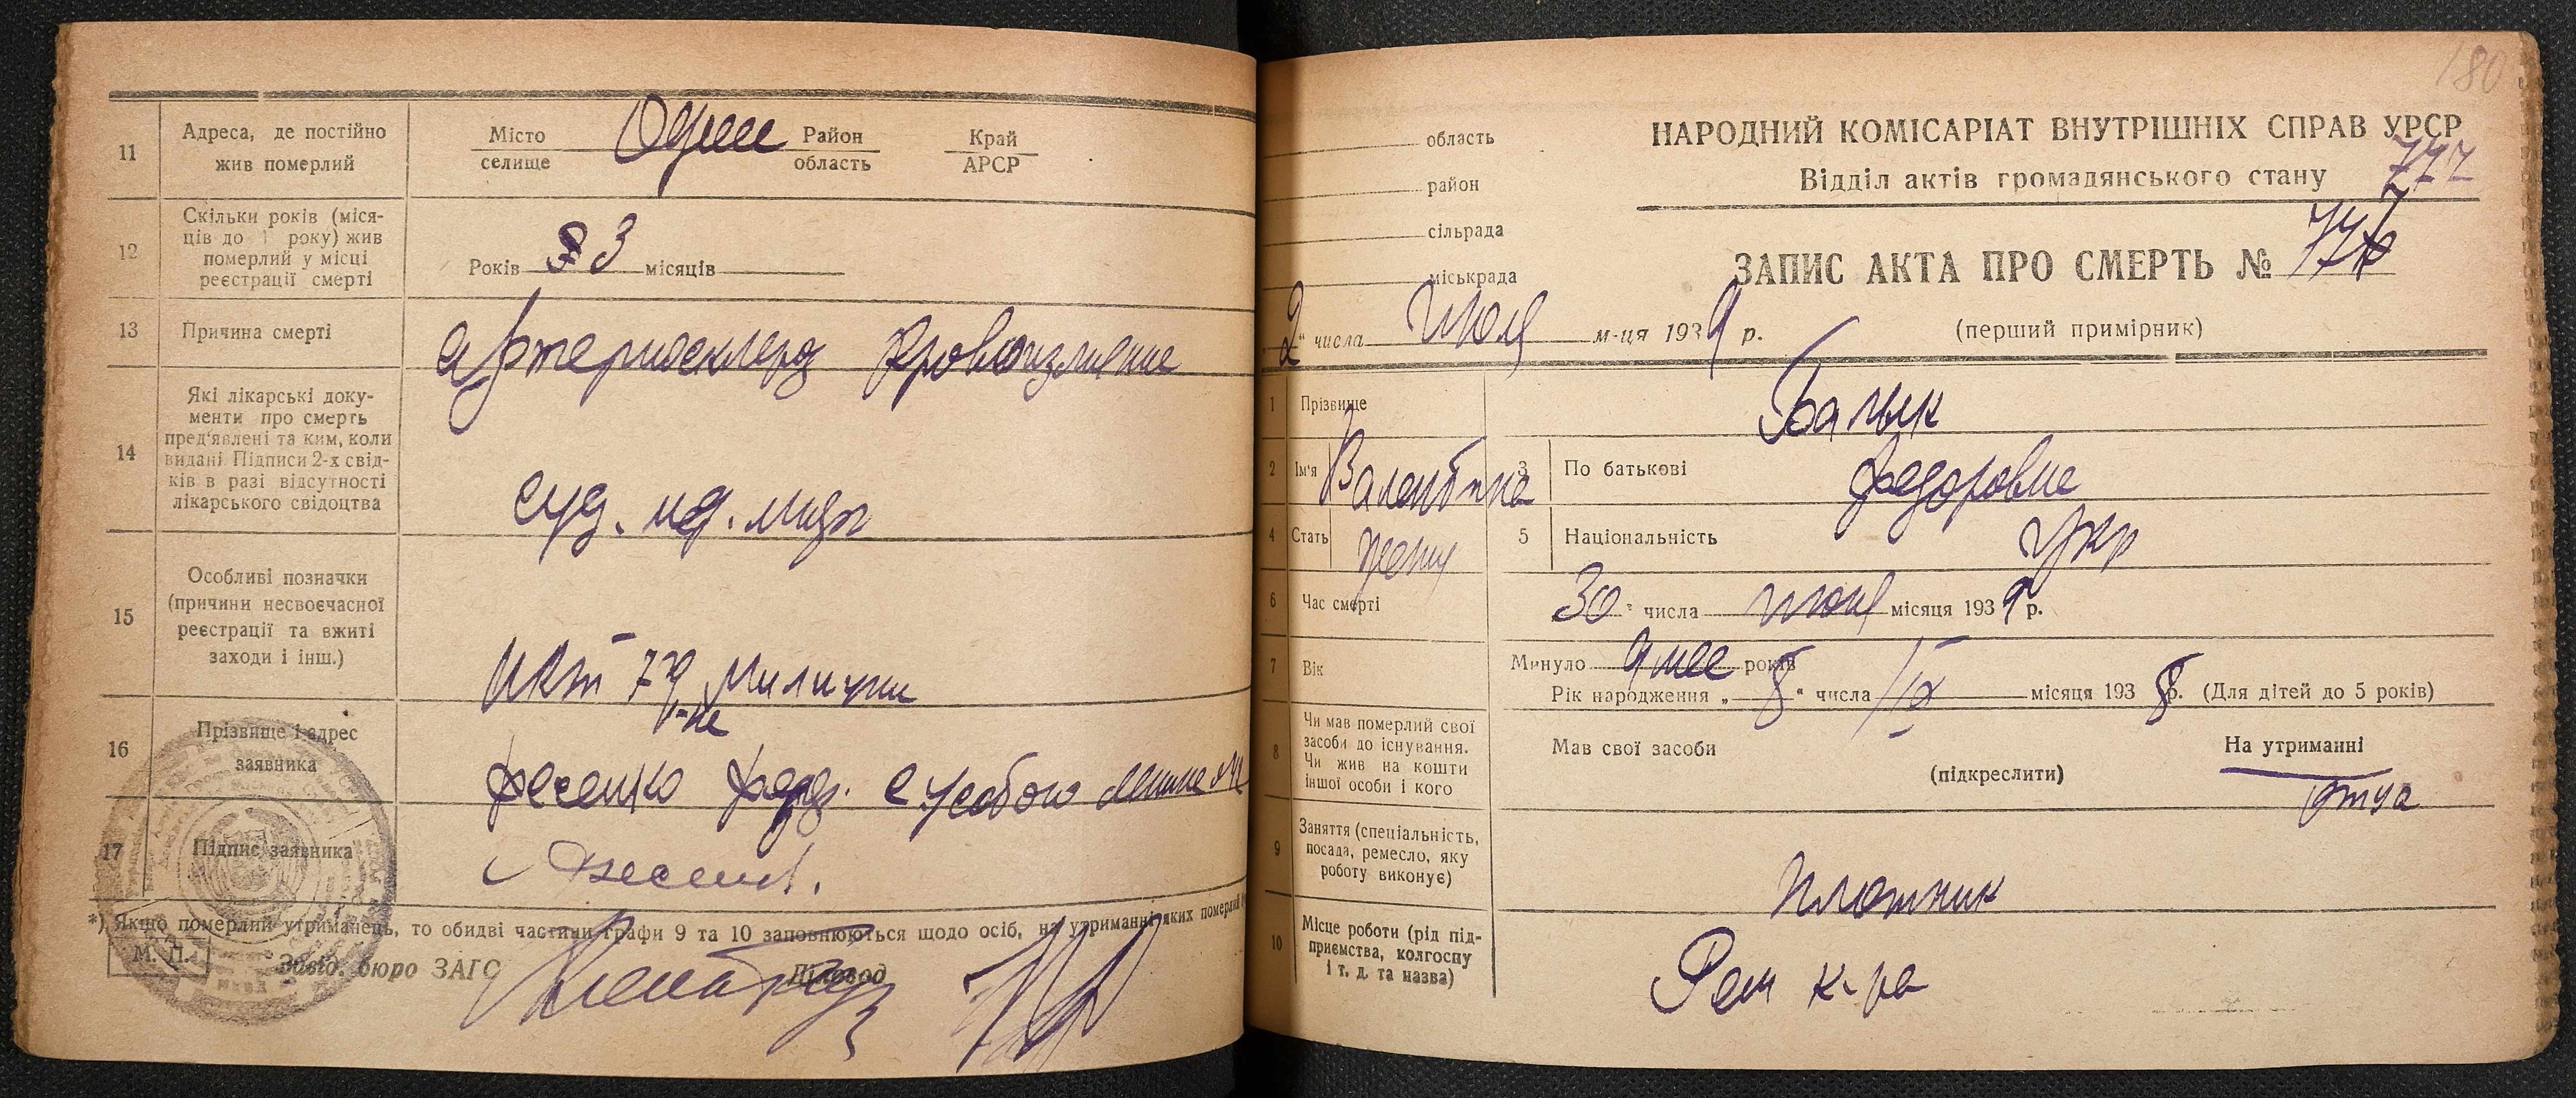 11
Адреса, де постійно
жив померлий
Місто
селище
Одесе
Район
область
Край
АРСР
12
Скільки років (міся-
ців до 1 року) жив
померлий у місці
реєстрації смерті
Років 3 місяців
13
Причина смерті
Артериосклероз Кровоизлияние
14
Які лікарські доку-
менти про смерть
пред'явлені та ким, коли
видані. Підписи 2-х свід-
ків в разі відсутності
лікарського свідоцтва
суд. мед.
15
Особливі позначки
(причини несвоєчасної
реєстрації та вжиті
заходи і інш.)
милиции
16
Прізвище і адрес
заявника
Фесенко
17
Підпис заявника
*) Якщо померлий утриманець, то обидві частини графи 9 та 10 заповнюються щодо осіб, на утриманні яких померлий
М. П.
Завід. бюро ЗАГС
Діловод
180
область
район
сільрада
міськрада
НАРОДНИЙ КОМІСАРІАТ ВНУТРІШНІХ СПРАВ УРСР
Відділ актів громадянського стану
777
ЗАПИС АКТА ПРО СМЕРТЬ №
2 " числа июля м-ця 1939 р.
(перший примірник)
1
Прізвище
2
Ім'я
Валентина
3
По батькові
Федоровне
4
Стать
женщ
5
Національність
Укр
6
Час смерті
30 " числа июня місяця 1939 р.
7
Вік
Минуло 9 мес років
Рік народження „ 8 " числа IX місяця 1938 р. (Для дітей до 5 років)
8
Чи мав померлий свої
засоби до існування.
Чи жив на кошти
іншої особи і кого
Мав свої засоби
(підкреслити)
На утриманні
отца
9
Заняття (спеціальність,
посада, ремесло, яку
роботу виконує)
Плотник
10
Місце роботи (рід під-
приємства, колгоспу
і т. д. та назва)
Рем к-ра